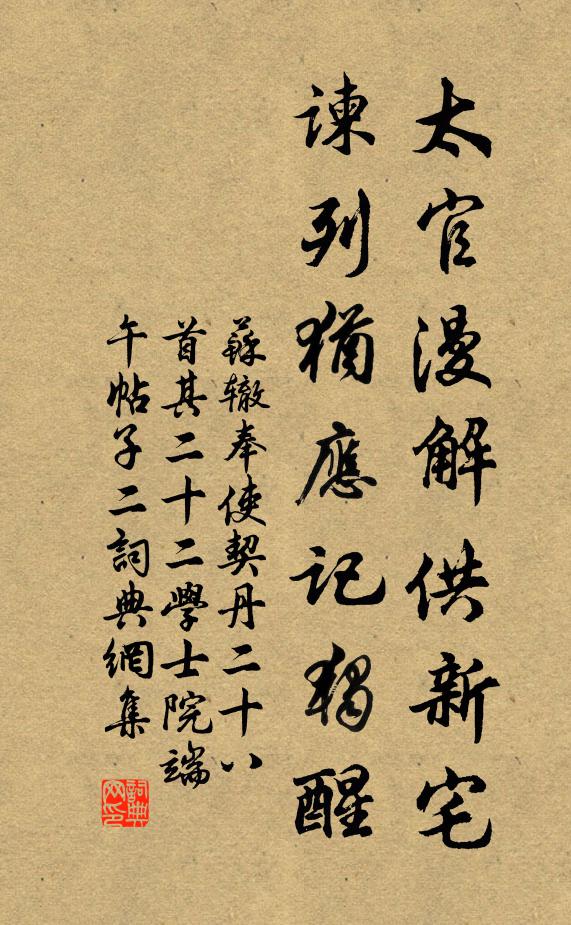 太官漫解供新宅
諫列猶應記獨醒
蘇轍奉使契丹二十八
首其二十二學士院端
午帖子二詞典網集
詞典网印